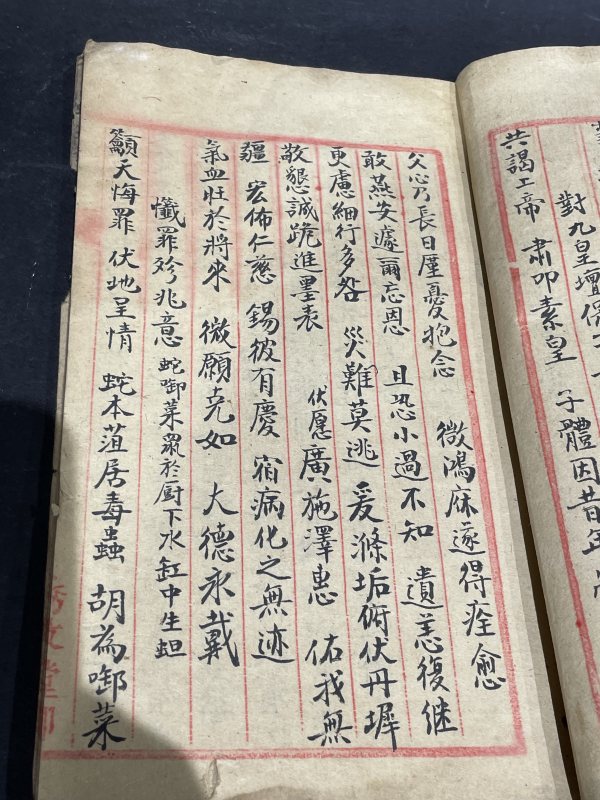 對九皇壇 子體因昔年
共謁上帝 肅叩素皇
父心乃長日廑憂抱念 微鴻庥遂得痊愈
敢燕安遽爾忘恩 且恐小過不知 遺恙復継
更慮細行多咎 災難莫逃 爰滌垢俯伏丹墀
敬懇誠跪進墨表 伏愿廣施澤惠 佑我無
疆 宏佈仁慈 錫彼有慶 宿病化之無迹
氣血壯於將來 微願克如 大德永戴
懺罪殄兆意 蛇啣菜眾於厨下水缸中生蛆
籲天悔罪 伏地呈情 蛇本菹居毒蟲 胡為啣菜
文堂